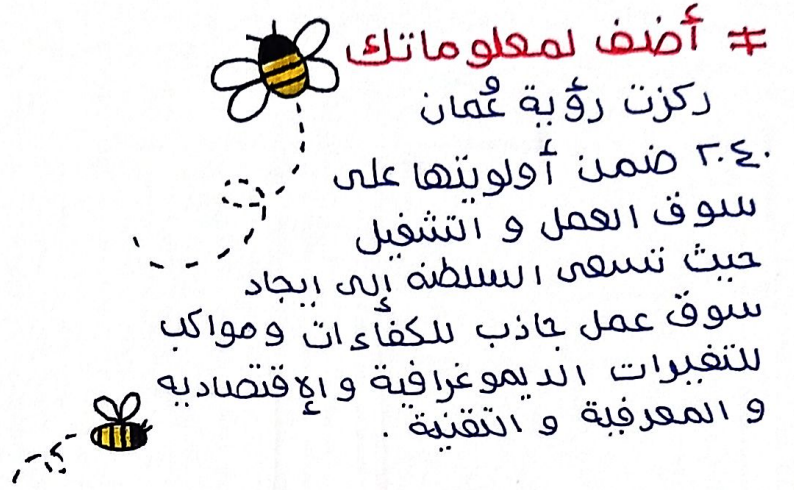 # أضف لمعلوماتك
ركزت رؤية عُمان
٢٠٤٠ ضمن أولويتها على
سوق العمل و التشغيل
حيث تسعى السلطنه إلى ايجاد
سوق عمل جاذب للكفاءات ومواكب
للتغيرات الديموغرافية و الإقتصاديه
و المعرفية و التقنية .